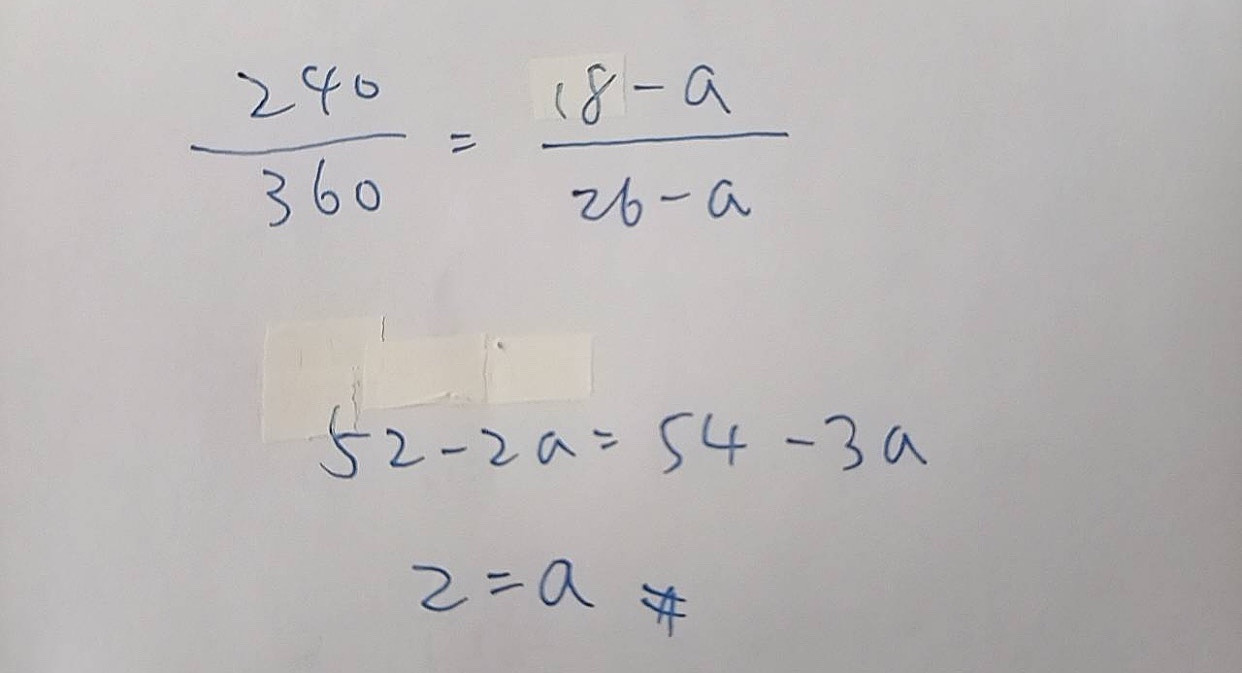 240/360 = 18-a/26-a
52-2a=54-3a
2=a #